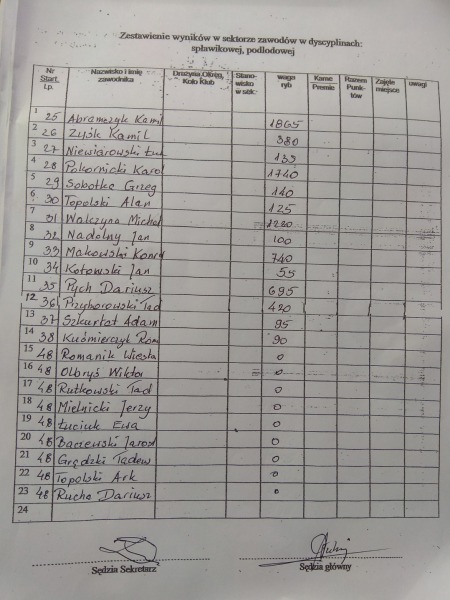 Zestawienie wyników w sektorze zawodów w dyscyplinach:
spławikowej, podlodowej
Nr Start. Lp. Nazwisko i Imię zawodnika Drużyna, Okręg, Koło Klub Stano- wisko w sek. waga ryb Karne Premie Razem Punk- tów Zajęte miejsce uwagi
1 25 Abramczyk Kamil 1865
2 26 Zyśk Kamil 380
3 27 Niewiarowski Łuk 133
4 28 Pokornicki Karol 1740
5 29 Sobotka Grzeg 140
6 30 Topolski Alan 125
7 31 Walczyna Michał 1220
8 32 Nadolny Jan 100
9 33 Makowski Konrd 740
10 34 Kotowski Jan 55
11 35 Pych Dariusz 695
12 36 Przyborowski Tad 420
13 37 Szkurłat Adam 95
14 38 Kuśmierczyk Rom 90
15 48 Romanik Wiesła 0
16 48 Olbryś Wiktor 0
17 48 Rutkowski Tad 0
18 48 Mielnicki Jerzy 0
19 48 Łuciuk Ewa 0
20 48 Baczewski Jarosł 0
21 48 Grędzki Tadew 0
22 48 Topolski Ark 0
23 48 Rucha Dariusz 0
24
Sędzia Sekretarz Sędzia główny